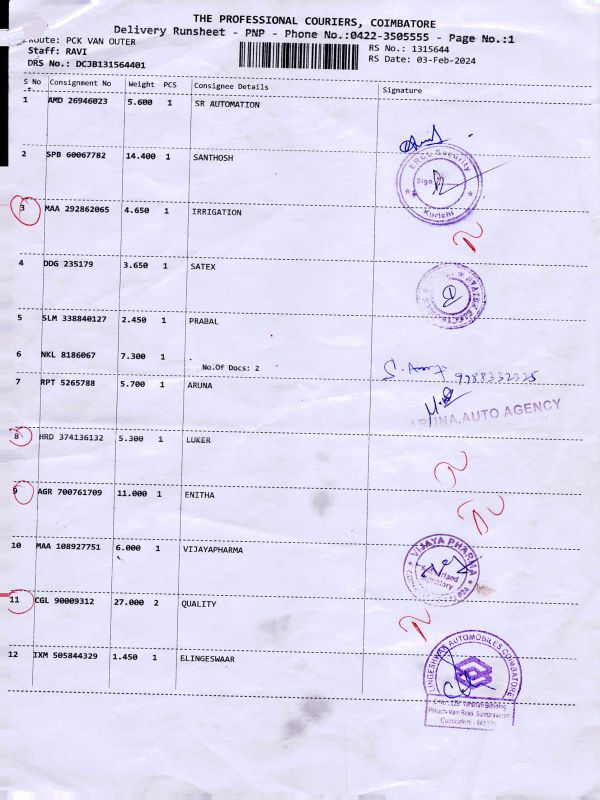 THE PROFESSIONAL COURIERS, COIMBATORE
Delivery Runsheet - PNP - Phone No.:0422-3505555 - Page No.:1
Route: PCK VAN OUTER
RS No.: 1315644
Staff: RAVI
RS Date: 03-Feb-2024
DRS No.: DCJB131564401
S No Consignment No Weight PCS Consignee Details Signature
1 AMD 26946023 5.600 1 SR AUTOMATION
2 SPB 60067782 14.400 1 SANTHOSH
ERCL Security
Sign
Kurichi
3 MAA 292862065 4.650 1 IRRIGATION
4 DDG 235179 3.650 1 SATEX
5 SLM 338840127 2.450 1 PRABAL
6 NKL 8186067 7.300 1
No.Of Docs: 2
7 RPT 5265788 5.700 1 ARUNA
ARUNA AUTO AGENCY
8 HRD 374136132 5.300 1 LUKER
9 AGR 700761709 11.000 1 ENITHA
10 MAA 108927751 6.000 1 VIJAYAPHARMA
VIJAYA PHARMA
11 CGL 90009312 27.000 2 QUALITY
12 IXM 505844329 1.450 1 ELINGESWAAR
AUTOMOBILES COIMBATORE